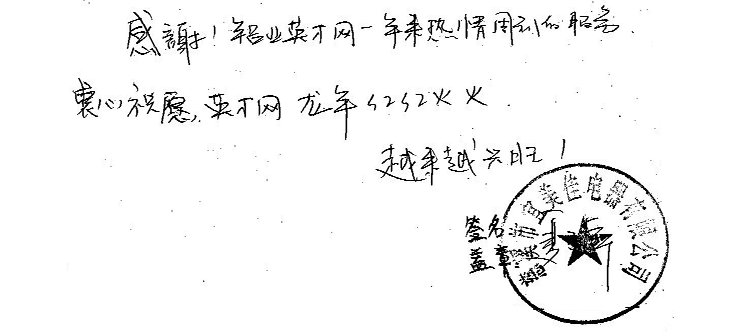 感謝！铝业英才网一年来热情周到的服务.
衷心祝愿,英才网 龙年红红火火
越来越兴旺！
签名
盖章
慈溪市宜美佳电器有限公司